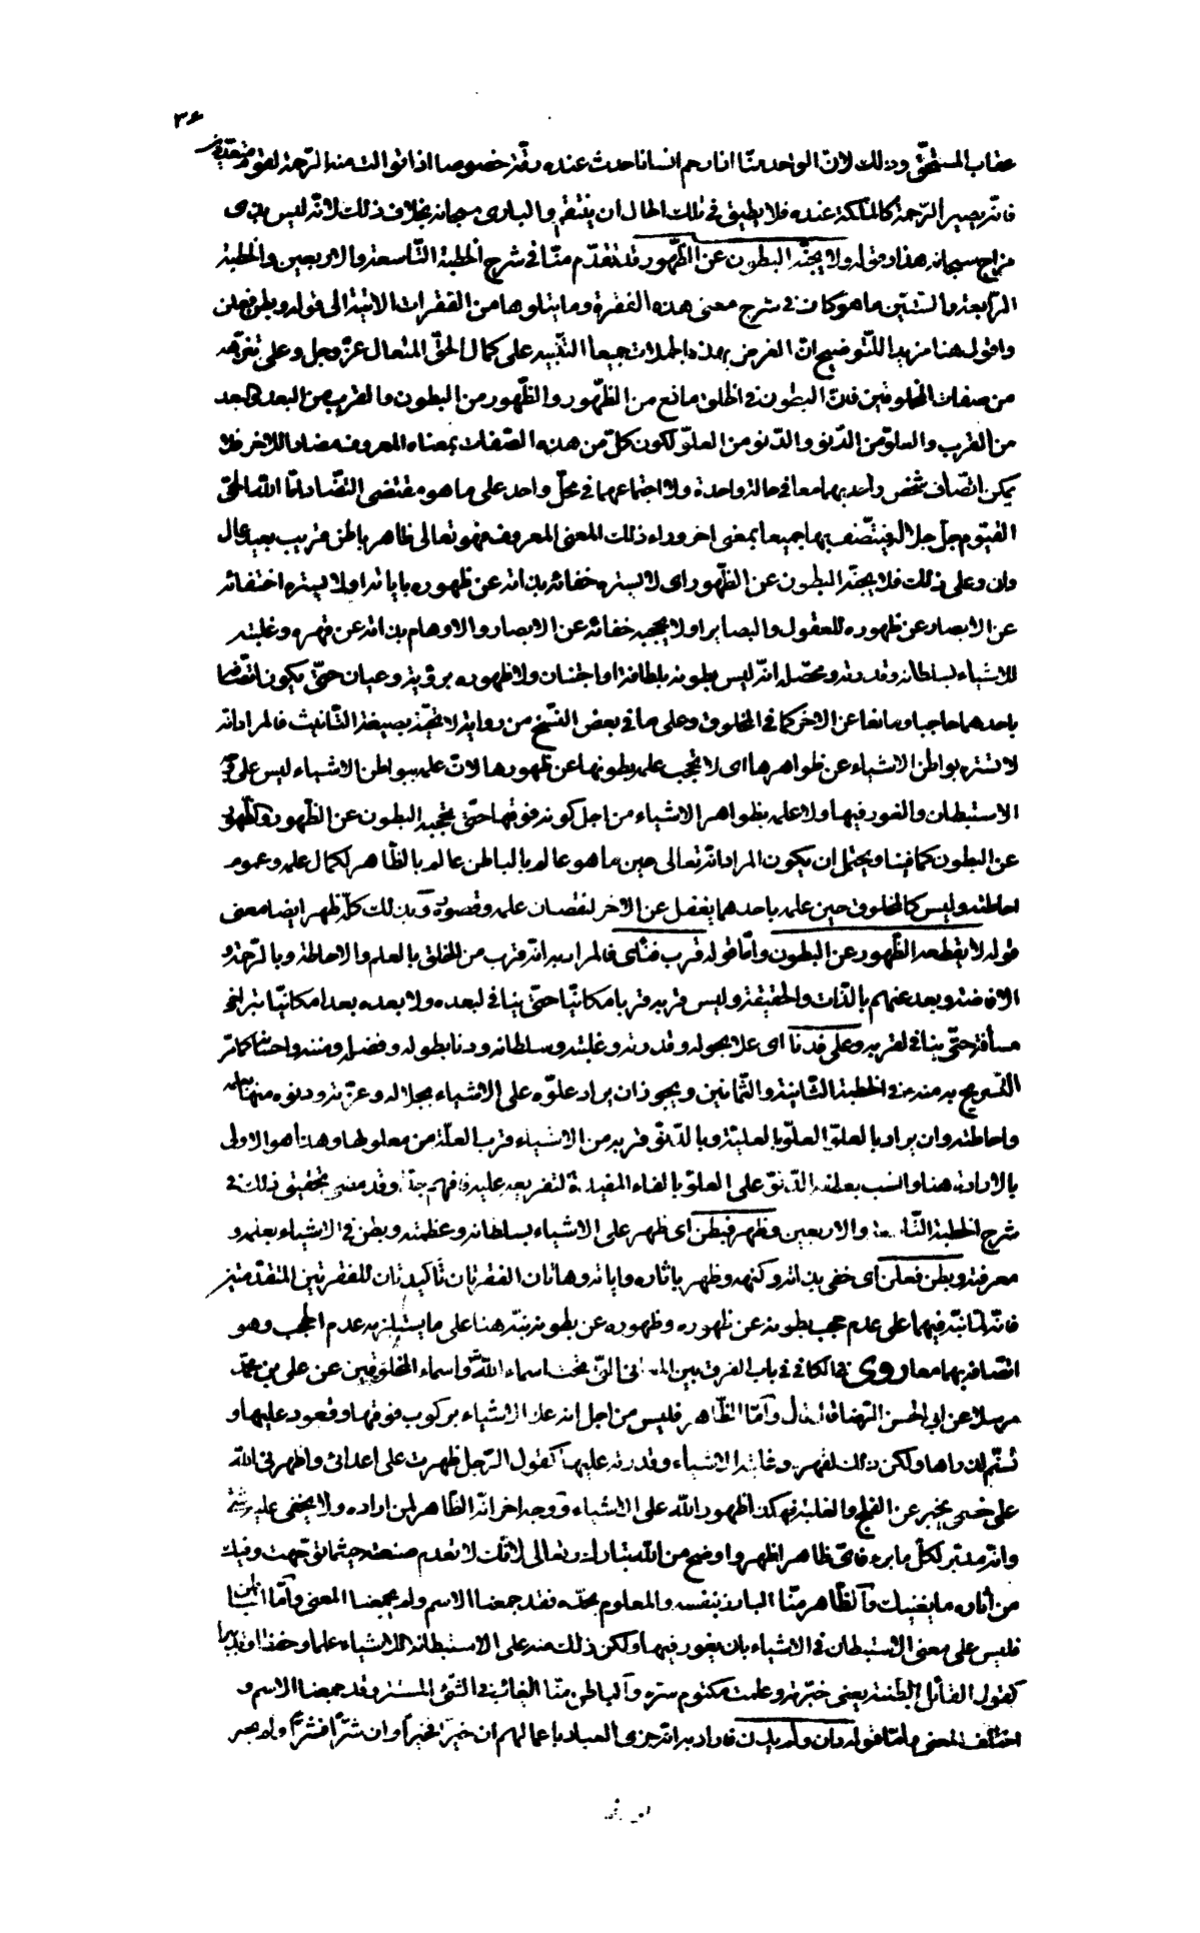 ٣۶
عقاب المستحقّ وذلك لانّ الواحد منّا اذا رحم انسانا حدث عنده رقّة خصوصا اذا توالت منه الرّحمة لقوم متعدّدين
فانّه يصير الرّحمة كالملكة عنده فلا يطيق في تلك الحال ان ينتقم والبارى سبحانه بخلاف ذلك لانّه ليس بذى
مزاج سبحانه هذا وقوله ولا يجنّه البطون عن الظّهور قد تقدّم منّا في شرح الخطبة التّاسعة والاربعين والخطبة
الرّابعة والستّين ما هو كاف في شرح معنى هذه الفقرة وما يتلوها من الفقرات الاتية الى قوله وبطن فعلن
واقول هنا مزيدا للتّوضيح انّ الغرض بهذه الجملات جميعا التنّبيه على كمال الحقّ المتعال عزّ وجل وعلى تنزّهه
من صفات المخلوقين فانّ البطون في الخلق مانع من الظّهور والظّهور من البطون والقرب من البعد والبعد
من القرب والعلوّ من الدّنو والدّنو من العلوّ لكون كلّ من هذه الصّفات بمعناه المعروف مضادا للاخر فلا
يمكن اتّصاف شخص واحد بهما معا في حالة واحدة ولا اجتماعهما في محلّ واحد على ما هو مقتضى التضّاد امّا الله الحىّ
القيّوم جلّ جلاله فيتّصف بها جميعا بمعنى اخر وراء ذلك المعنى المعروف فهو تعالى ظاهر باطن قريب بعيد عال
دان وعلى ذلك فلا يجنّه البطون عن الظّهور اى لا يستره خفائه بذاته عن ظهوره باياته او لا يستره اختفائه
عن الابصار عن ظهوره للعقول والبصاير او لا يحجبه خفائه عن الابصار والاوهام بذاته عن قهره وغلبته
للاشياء بسلطانه وقدرته ومحصّله انّه ليس بطونه بلطافة او اجتنان ولا ظهوره برؤية وعيان حتّى يكون اتّصافه
باحدهما حاجبا ومانعا عن الاخر كما في المخلوق وعلى ما في بعض النّسخ من رواية لا تجنّه بصيغة التّانيث فالمراد انّه
لا تستره بواطن الاشياء عن ظواهرها اى لا تحجب علمه بطونها عن ظهورها لانّ علمه ببواطن الاشياء ليس على وجه
الاستبطان والغور فيها ولا علمه بظواهر الاشياء من اجل كونه فوقها حتّى يحجبه البطون عن الظّهور والظّهور
عن البطون كما فينا ويحتمل ان يكون المراد انّه تعالى حين ما هو عالم بالباطن عالم بالظّاهر لكمال علمه وعموم
احاطته وليس كالمخلوق حين علمه باحدهما يغفل عن الاخر لنقصان علمه وقصوره وبذلك كلّه ظهر ايضا معنى
قوله لا يقطعه الظّهور عن البطون وامّا قوله قرب فنأى فالمراد به انّه قرب من الخلق بالعلم والاحاطة وبالرّحمة و
الافاضة وبعد عنهم بالذّات والحقيقة وليس قربه قربا مكانيّا حتّى ينافي لبعده ولا بعده بعدا مكانيّا بتراخى
مسافة حتّى ينافي لقربه وعلى فدنا اى علا بحوله وقدرته وغلبته وسلطانه ودنا بطوله وفضله ومننه واحسانه كما مرّ
التّصريح به منه في الخطبة الثّانية والثّمانين ويجوز ان يراد علوّه على الاشياء بجلاله وعزّته ودنوه منها بعلمه
واحاطته وان يراد بالعلوّ العلوّ بالعليّة وبالدّنوّ قربه من الاشياء قرب العلّة من معلولها وهذا هو الاولى
بالارادة هنا وانسب بعطف الدّنوّ على العلوّ بالفاء المفيدة لتفريعه عليه فافهم جدّا وقد مضى تحقيق ذلك في
شرح الخطبة والاربعين وظهر فبطن اى ظهر على الاشياء بسلطانه وعظمته وبطن في الاشياء بعلمه و
معرفته وبطن فعلن اى خفى بذاته وكنهه وظهر باثاره واياته وهاتان الفقرتان تاكيدتان للفقرتين المتقدّمتين
فانّه لمّا نبّه فيهما على عدم حجب بطونه عن ظهوره وظهوره عن بطونه نبّه هنا على ما يستلزمه عدم الحجب وهو
اتّصافه بهما معا روى في الكافي في باب الفرق بين المعانى الّتى تحت اسماء الله واسماء المخلوقين عن على بن محمّد
مرسلا عن ابى الحسن الرّضا قال قال وامّا الظّاهر فليس من اجل انه علا الاشياء بركوب فوقها وقعود عليها و
تسنّم لذراها ولكن ذلك لقهره وغلبته الاشياء وقدرته عليها كقول الرّجل ظهرت على اعدائى واظهرنى الله
على خصمى يخبر عن الفلج والغلبة فهكذا ظهور الله على الاشياء ووجه اخر انّه الظّاهر لمن اراده ولا يخفى عليه شئ
وانّه مدبّر لكلّ ما برء فاىّ ظاهر اظهر واوضح من الله تبارك وتعالى لانّك لا تعدم صنعته حيثما توجّهت وفيك
من آثاره ما يغنيك والظّاهر منّا البارز بنفسه والمعلوم بحدّه فقد جمعنا الاسم ولم يجمعنا المعنى وامّا الباطن
فليس على معنى الاستبطان في الاشياء بان يغور فيها ولكن ذلك منه على الاستبطانه للاشياء علما وحفظا وتدبيرا
كقول القائل ابطنته يعنى خبّرته وعلمت مكتوم سرّه والباطن منّا الغائب في الشّئ المستتر وقد جمعنا الاسم و
اختلف المعنى وامّا قوله ودان ولم يدن فاراد به انّه جزى العباد باعمالهم ان خيرا فخيراً وان شرّاً فشرّاً ولم يجز